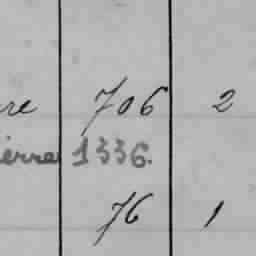 re 706 2
ierre 1336.
76 1